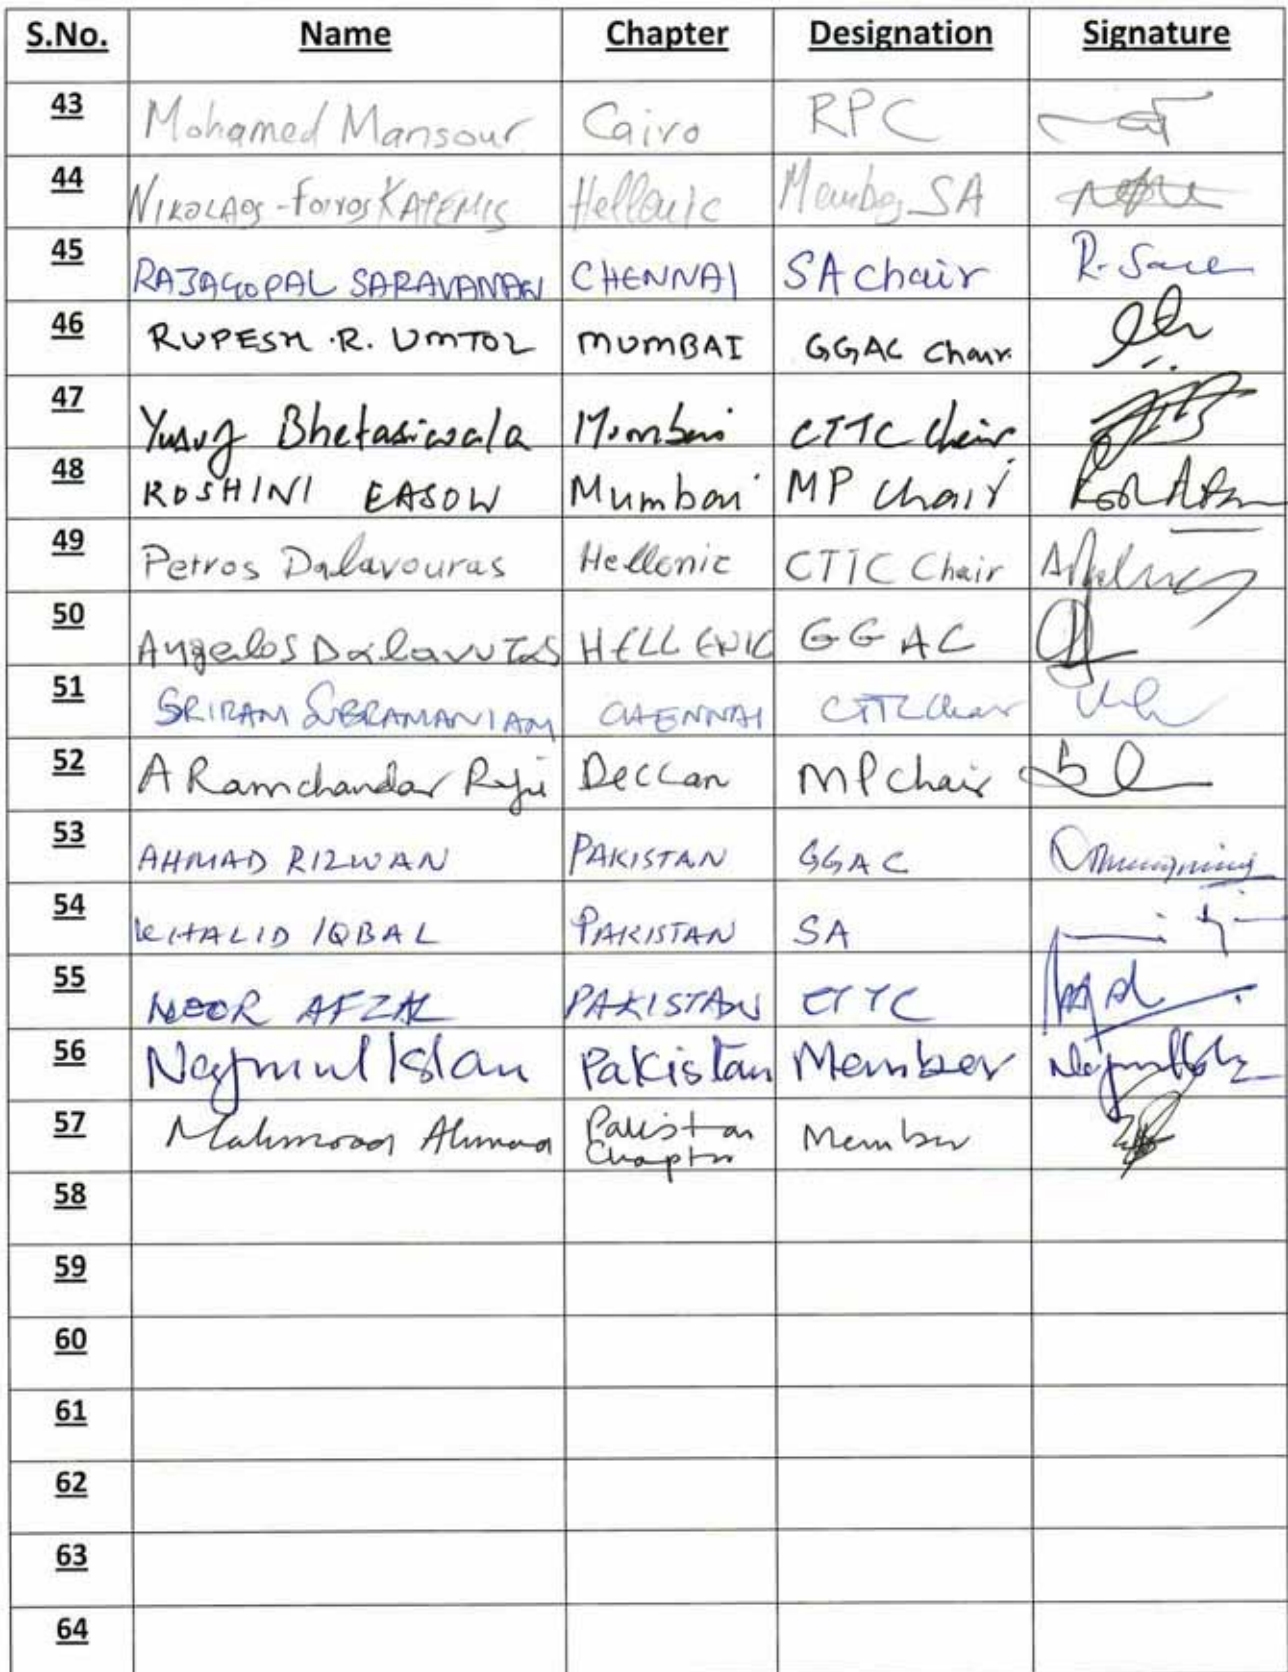 S.No. Name Chapter Designation Signature
43 Mohamed Mansour Cairo RPC
44 NIKOLAOS - Foivos Hellenic Member SA
45 RAJAGOPAL SARAVANAN CHENNAI SA Chair R. Sara
46 RUPESH .R. UMTOL MUMBAI GGAC Chair
47 Yusuf Bhetasiwala Mumbai CTTC Chair
48 ROSHINI EASOW Mumbai MP Chair
49 Petros Dalavouras Hellenic CTTC Chair
50 Angelos Dalavuras HELLENIC GGAC
51 SRIRAM SUBRAMANIAM CHENNAI CTTC Chair
52 A Ramchandar Deccan MP Chair
53 AHMAD RIZWAN PAKISTAN GGAC
54 KHALID IQBAL PAKISTAN SA
55 NOOR AFZAL PAKISTAN CTTC
56 Najmul Islam Pakistan Member
57 Mahmood Ahmad Pakistan Member
Chapter
58
59
60
61
62
63
64